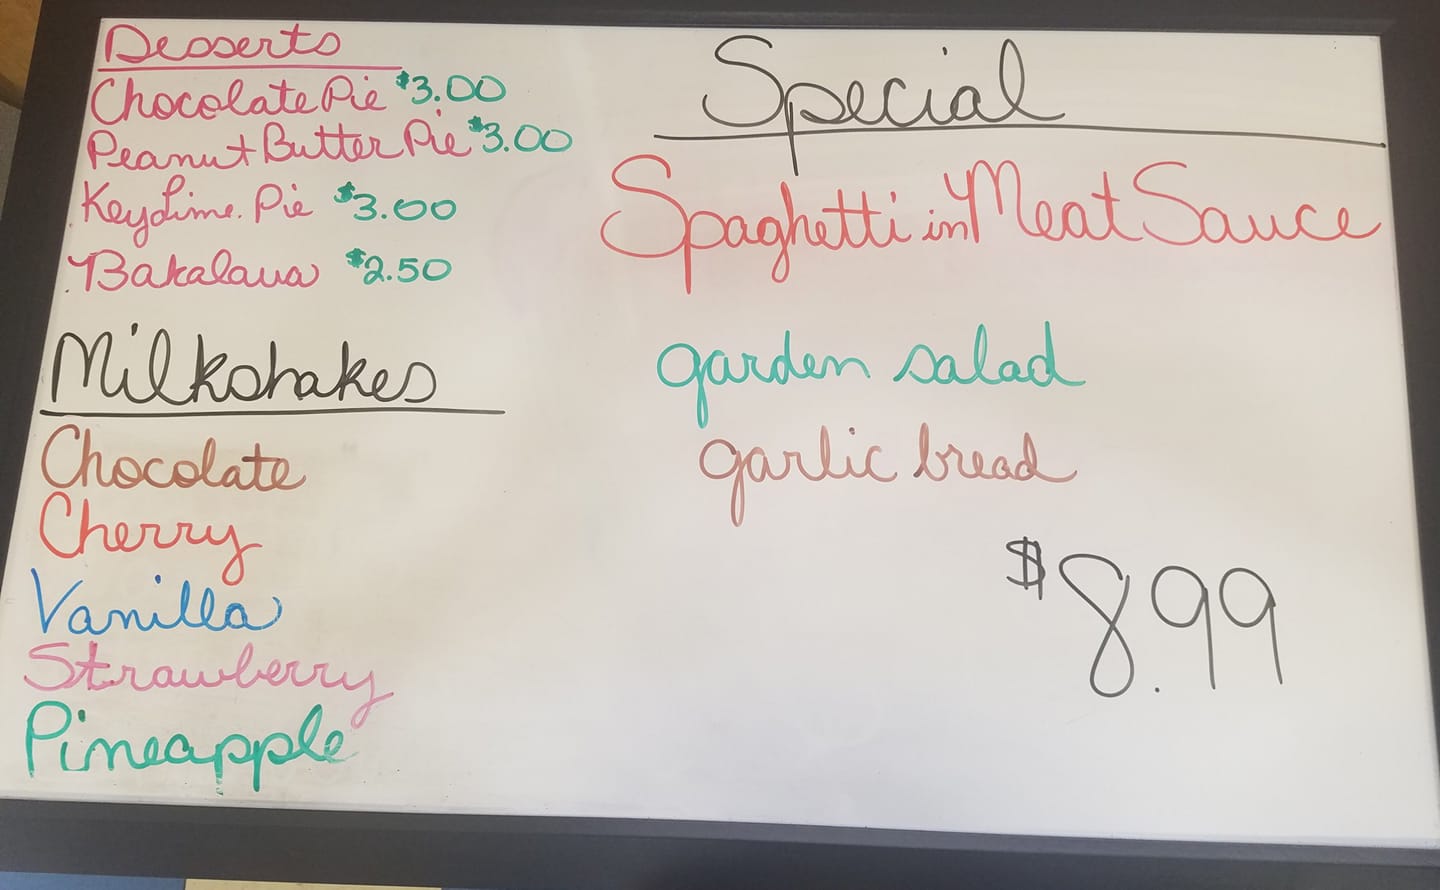 Desserts
Chocolate Pie $3.00
Peanut Butter Pie $3.00
Key Lime. Pie $3.00
Bakalava $2.50
Milkshakes
Chocolate
Cherry
Vanilla
Strawberry
Pineapple
Special
Spaghetti in Meat Sauce
garden salad
garlic bread
$8.99